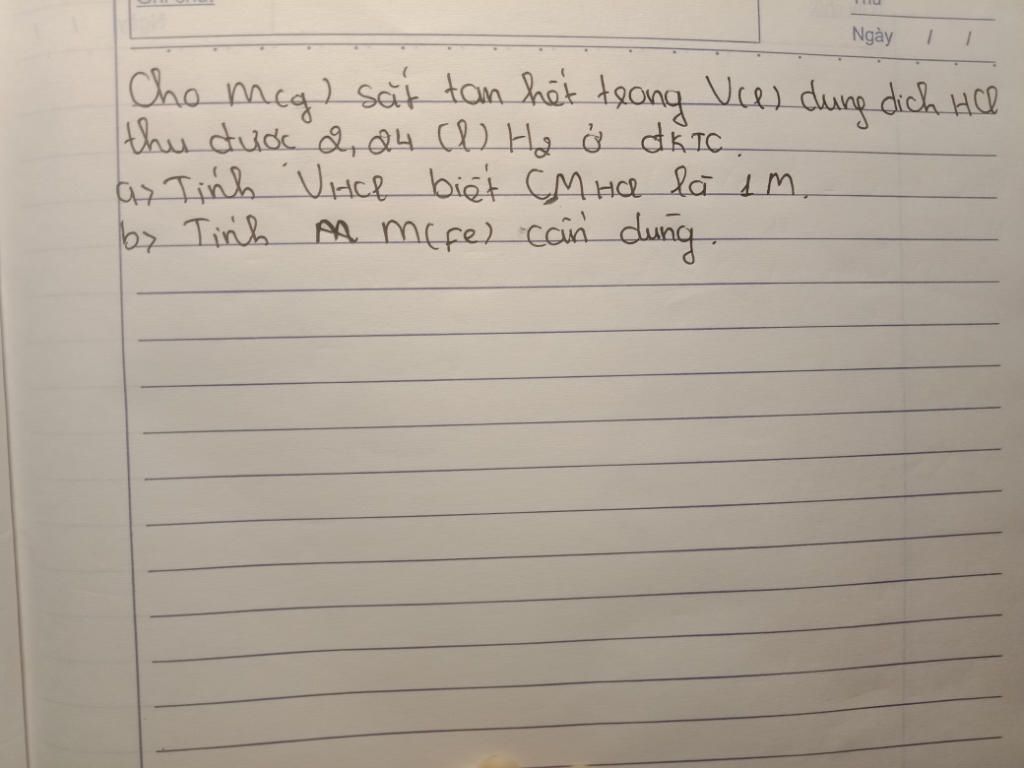 Thứ
Ngày / /
Cho m(g) sắt tan hết trong V(l) dung dịch HCl
thu được 2,24 (l) H2 ở đKTC.
a> Tính VHCl biết CM HCl là 1M.
b> Tính m m(Fe) cần dùng.